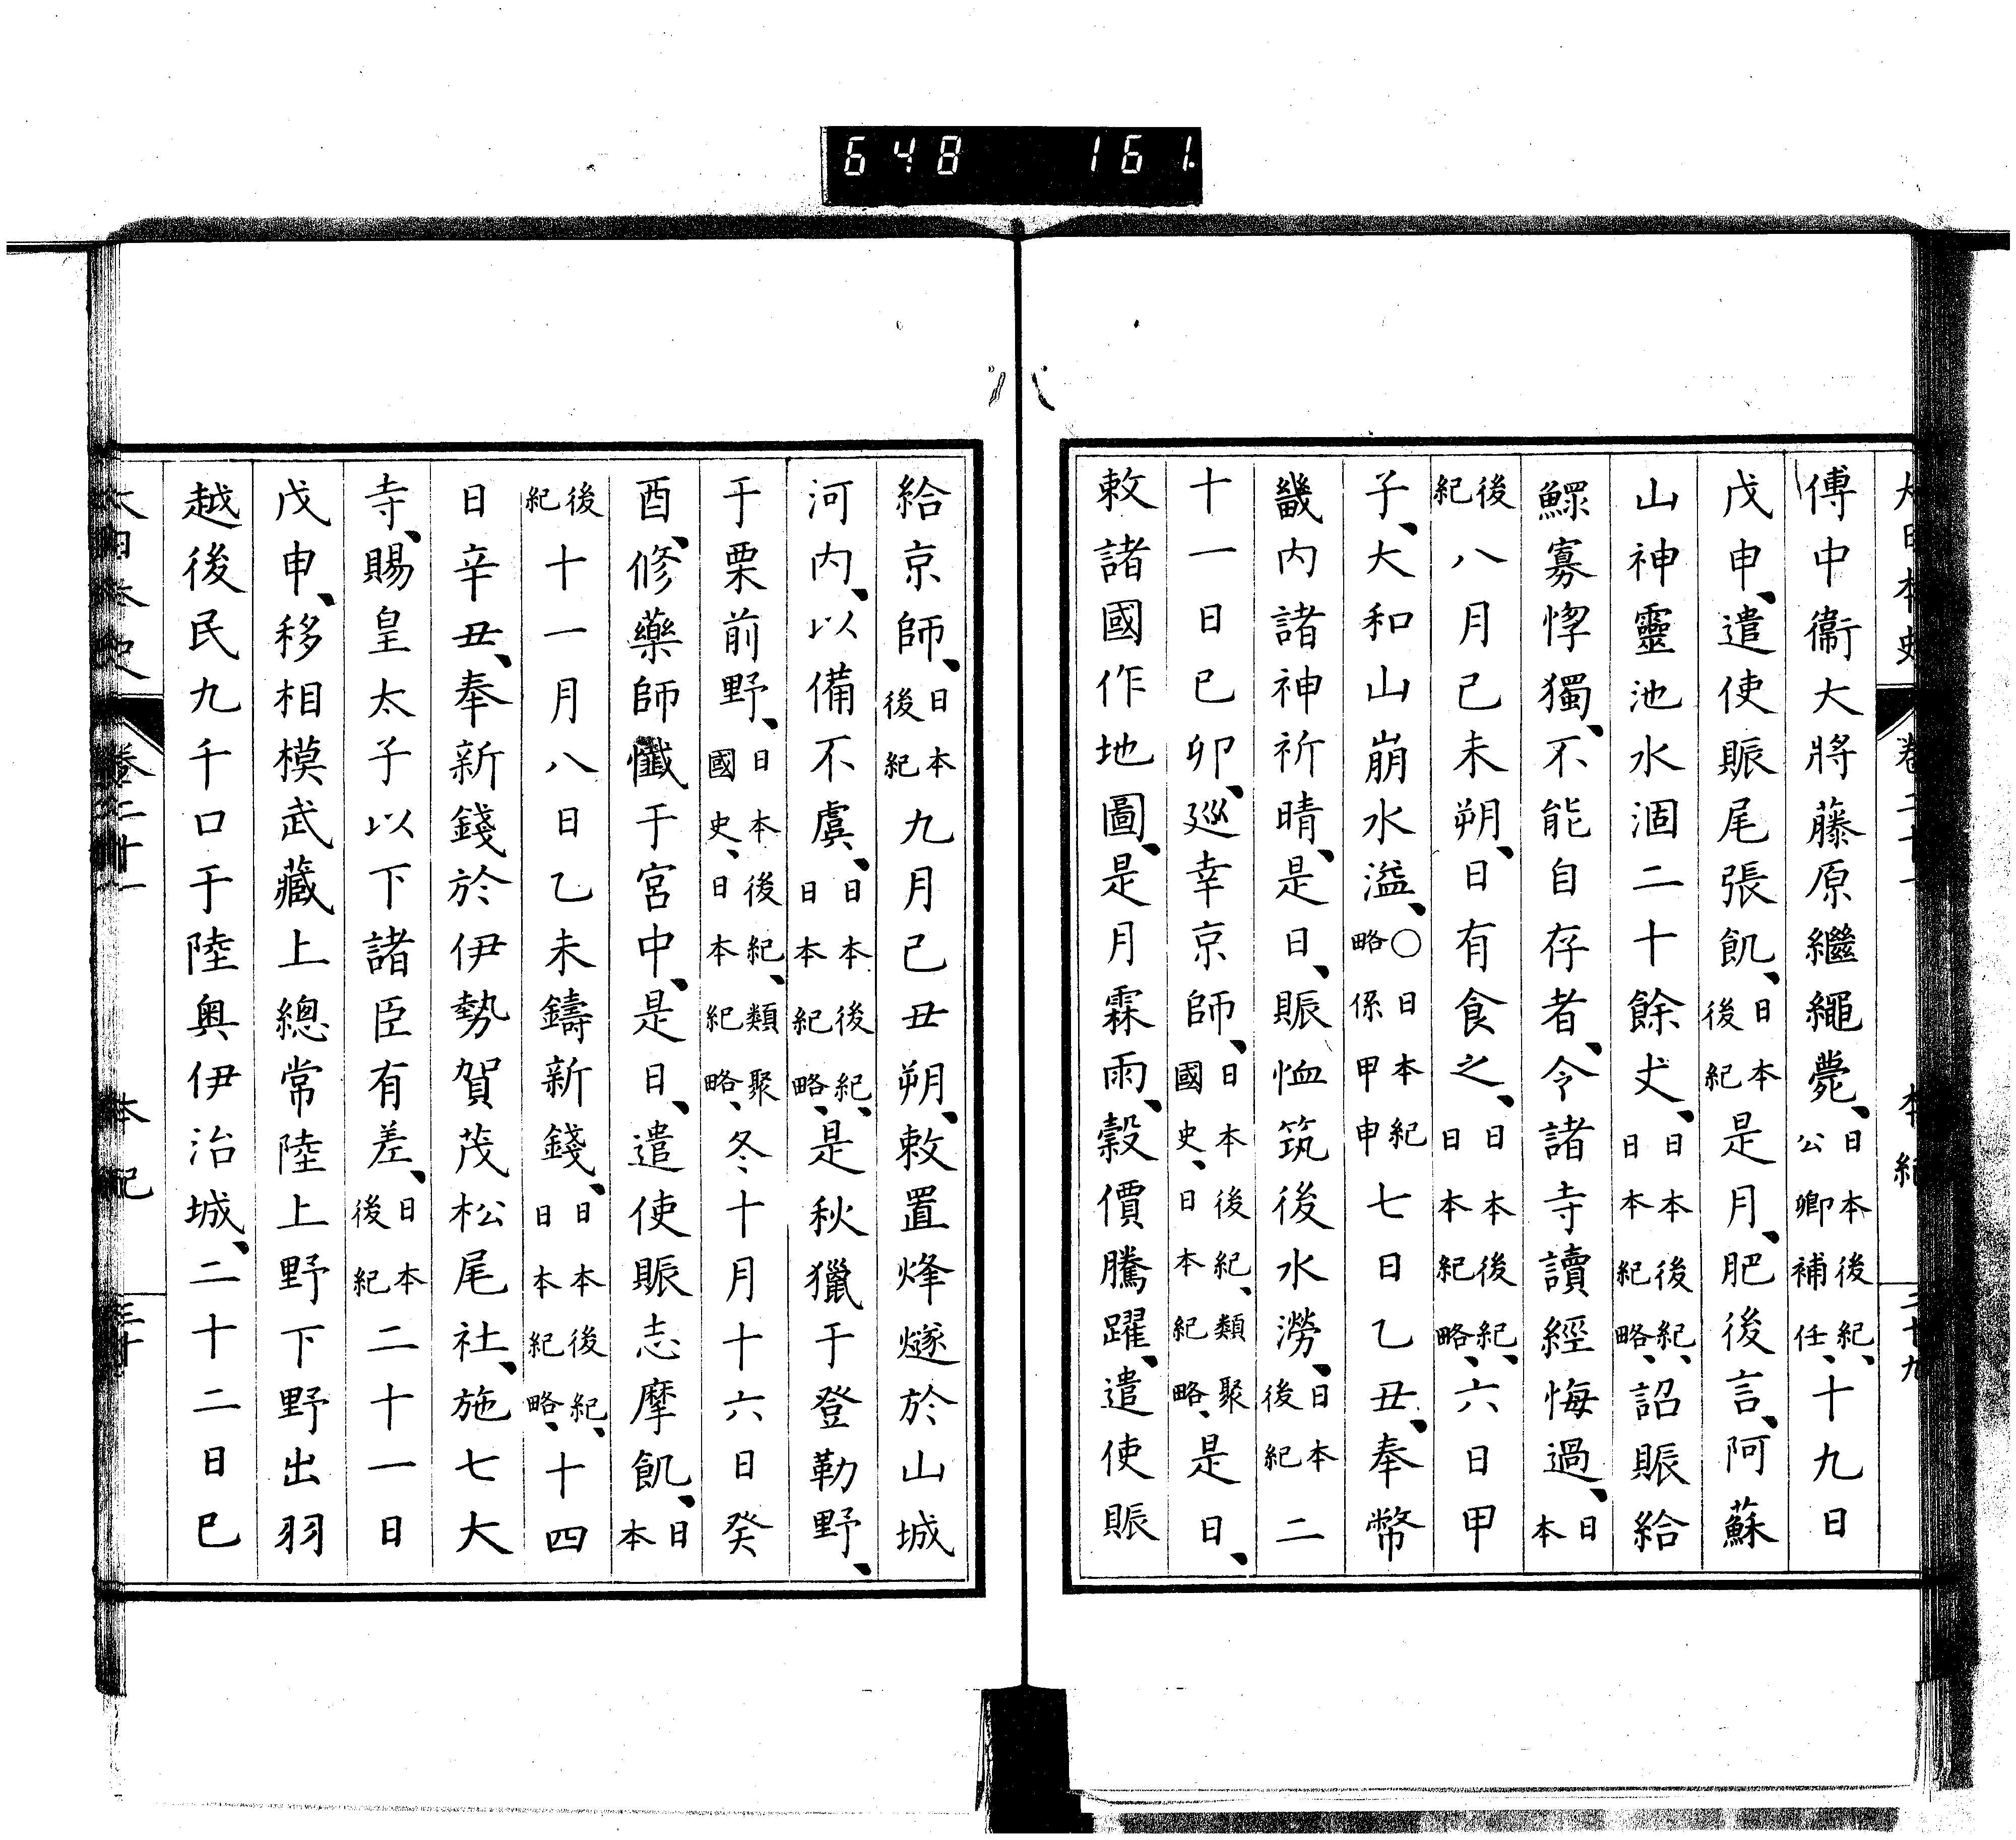 648 161
大日本史 卷二十一 本紀 二十九
傅中衞大將藤原繼繩薨、日本後紀、公卿補任、十九日
戊申、遣使賑尾張飢、日本後紀是月、肥後言、阿蘇
山神靈池水涸二十餘丈、日本後紀、日本紀略、詔賑給
鰥寡惸獨、不能自存者、令諸寺讀經悔過、日本
後紀八月己未朔、日有食之、日本後紀、日本紀略、六日甲
子、大和山崩水溢、○日本紀略係甲申七日乙丑、奉幣
畿内諸神祈晴、是日、賑恤筑後水澇、日本後紀二
十一日己卯、巡幸京師、日本後紀、類聚國史、日本紀略、是日、
敕諸國作地圖、是月霖雨、穀價騰躍、遣使賑
給京師、日本後紀九月己丑朔、敕置烽燧於山城
河内、以備不虞、日本後紀、日本紀略、是秋獵于登勒野、
于栗前野、日本後紀、類聚國史、日本紀略、冬十月十六日癸
酉、修藥師懺于宮中、是日、遣使賑志摩飢、日本
後紀十一月八日乙未鑄新錢、日本後紀、日本紀略、十四
日辛丑、奉新錢於伊勢賀茂松尾社、施七大
寺、賜皇太子以下諸臣有差、日本後紀二十一日
戊申、移相模武藏上總常陸上野下野出羽
越後民九千口于陸奥伊治城、二十二日己
大日本史 卷二十一 本紀 三十